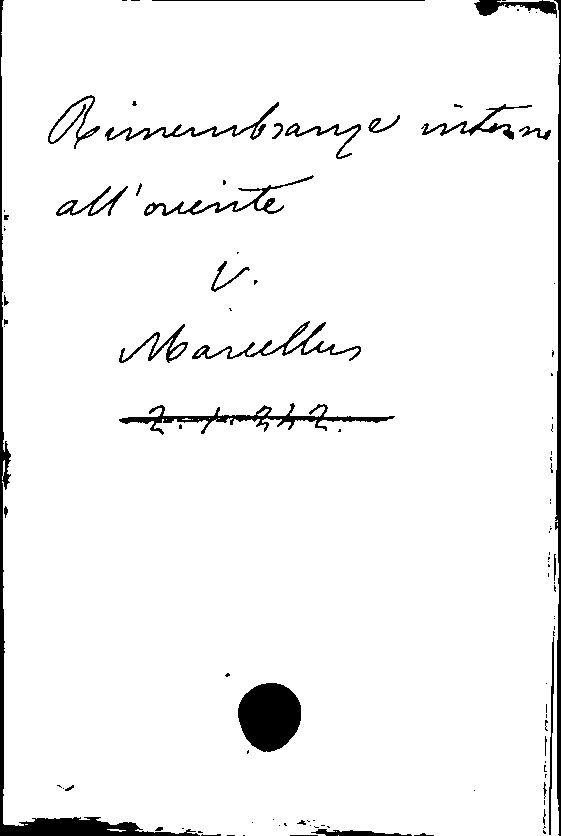 Rimembranze interno
all'oriente
V.
Marcellus
2. 1. 242.